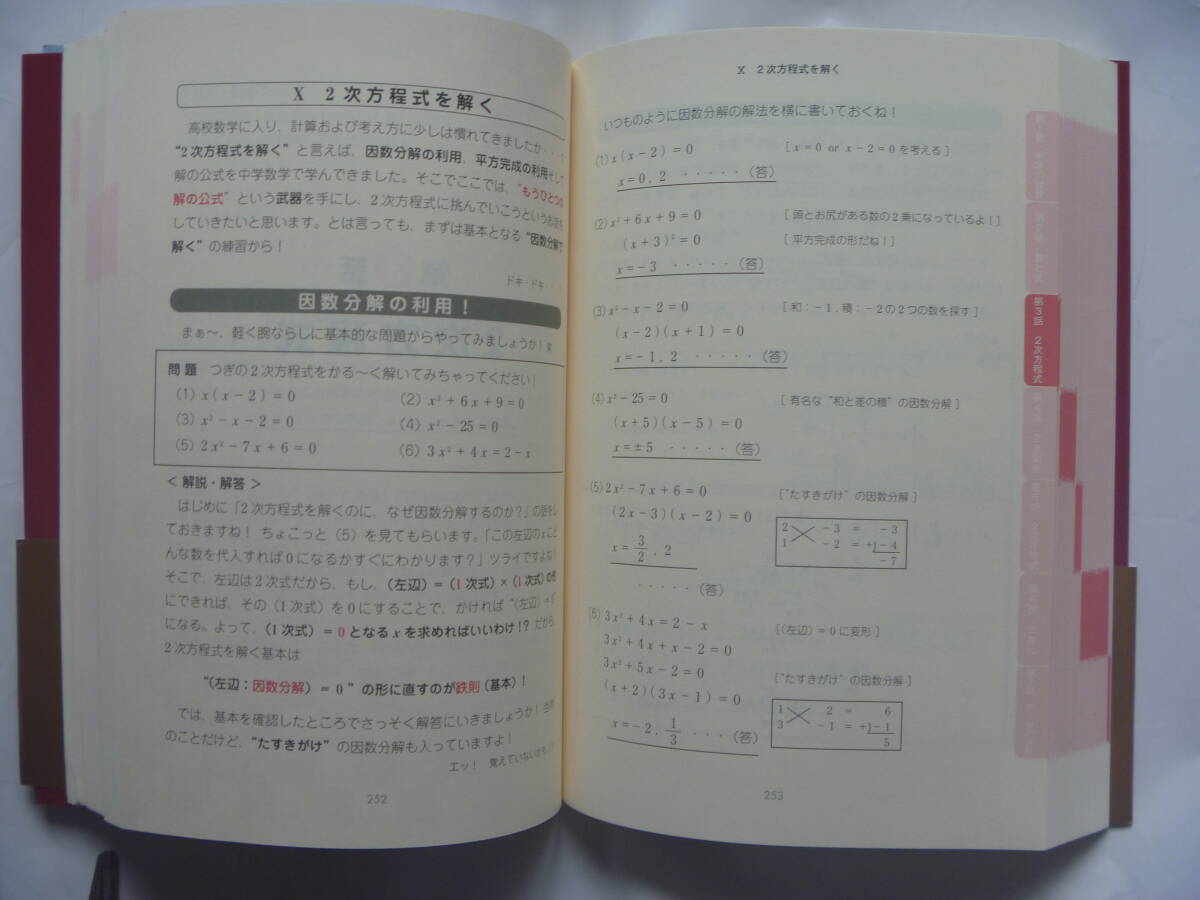 X　2次方程式を解く
高校数学に入り、計算および考え方に少しは慣れてきましたか・・・
“2次方程式を解く”と言えば、因数分解の利用、平方完成の利用そして
解の公式を中学数学で学んできました。そこでここでは、“もうひとつの
解の公式”という武器を手にし、2次方程式に挑んでいこうという
していきたいと思います。とは言っても、まずは基本となる“因数分解で
解く”の練習から！
ドキ・ドキ・・
因数分解の利用！
まぁ〜、軽く腕ならしに基本的な問題からやってみましょうか！
問題　つぎの2次方程式をかる〜く解いてみちゃってください！
(1) x(x−2)=0　(2) x²+6x+9=0
(3) x²−x−2=0　(4) x²−25=0
(5) 2x²−7x+6=0　(6) 3x²+4x=2−x
＜解説・解答＞
はじめに「2次方程式を解くのに、なぜ因数分解するのか？」の話をし
ておきますね！ ちょこっと（5）を見てもらいます。「この左辺のxにど
んな数を代入すれば0になるかすぐにわかります？」ツライですよね！
そこで、左辺は2次式だから、もし、（左辺）=（1次式）×（1次式）の形
にできれば、その（1次式）を0にすることで、かければ“（左辺）=0”
になる。よって、（1次式）=0となるxを求めればいいわけ!? だから、
2次方程式を解く基本は
“（左辺：因数分解）=0”の形に直すのが鉄則（基本）！
では、基本を確認したところでさっそく解答にいきましょうか！当然
のことだけど、“たすきがけ”の因数分解も入っていますよ！
エッ！ 覚えていないかも
252
X　2次方程式を解く
いつものように因数分解の解法を横に書いておくね！
(1) x(x−2)=0　[ x=0 or x−2=0を考える ]
x=0, 2 ・・・・・（答）
(2) x²+6x+9=0　[ 頭とお尻がある数の2乗になっているよ！]
(x+3)²=0　[ 平方完成の形だね！]
x=−3 ・・・・・（答）
(3) x²−x−2=0　[ 和：−1, 積：−2の2つの数を探す ]
(x−2)(x+1)=0
x=−1, 2 ・・・・・（答）
(4) x²−25=0　[ 有名な“和と差の積”の因数分解 ]
(x+5)(x−5)=0
x=±5 ・・・・・（答）
(5) 2x²−7x+6=0　[“たすきがけ”の因数分解 ]
(2x−3)(x−2)=0
2　−3 = −3
1　−2 = +)−4
−7
x=3/2, 2
・・・・・（答）
(6) 3x²+4x=2−x　[（左辺）=0に変形 ]
3x²+4x+x−2=0
3x²+5x−2=0
(x+2)(3x−1)=0　[“たすきがけ”の因数分解 ]
1　2 = 6
3　−1 = +)−1
5
x=−2, 1/3 ・・・（答）
253
第3話　2次方程式